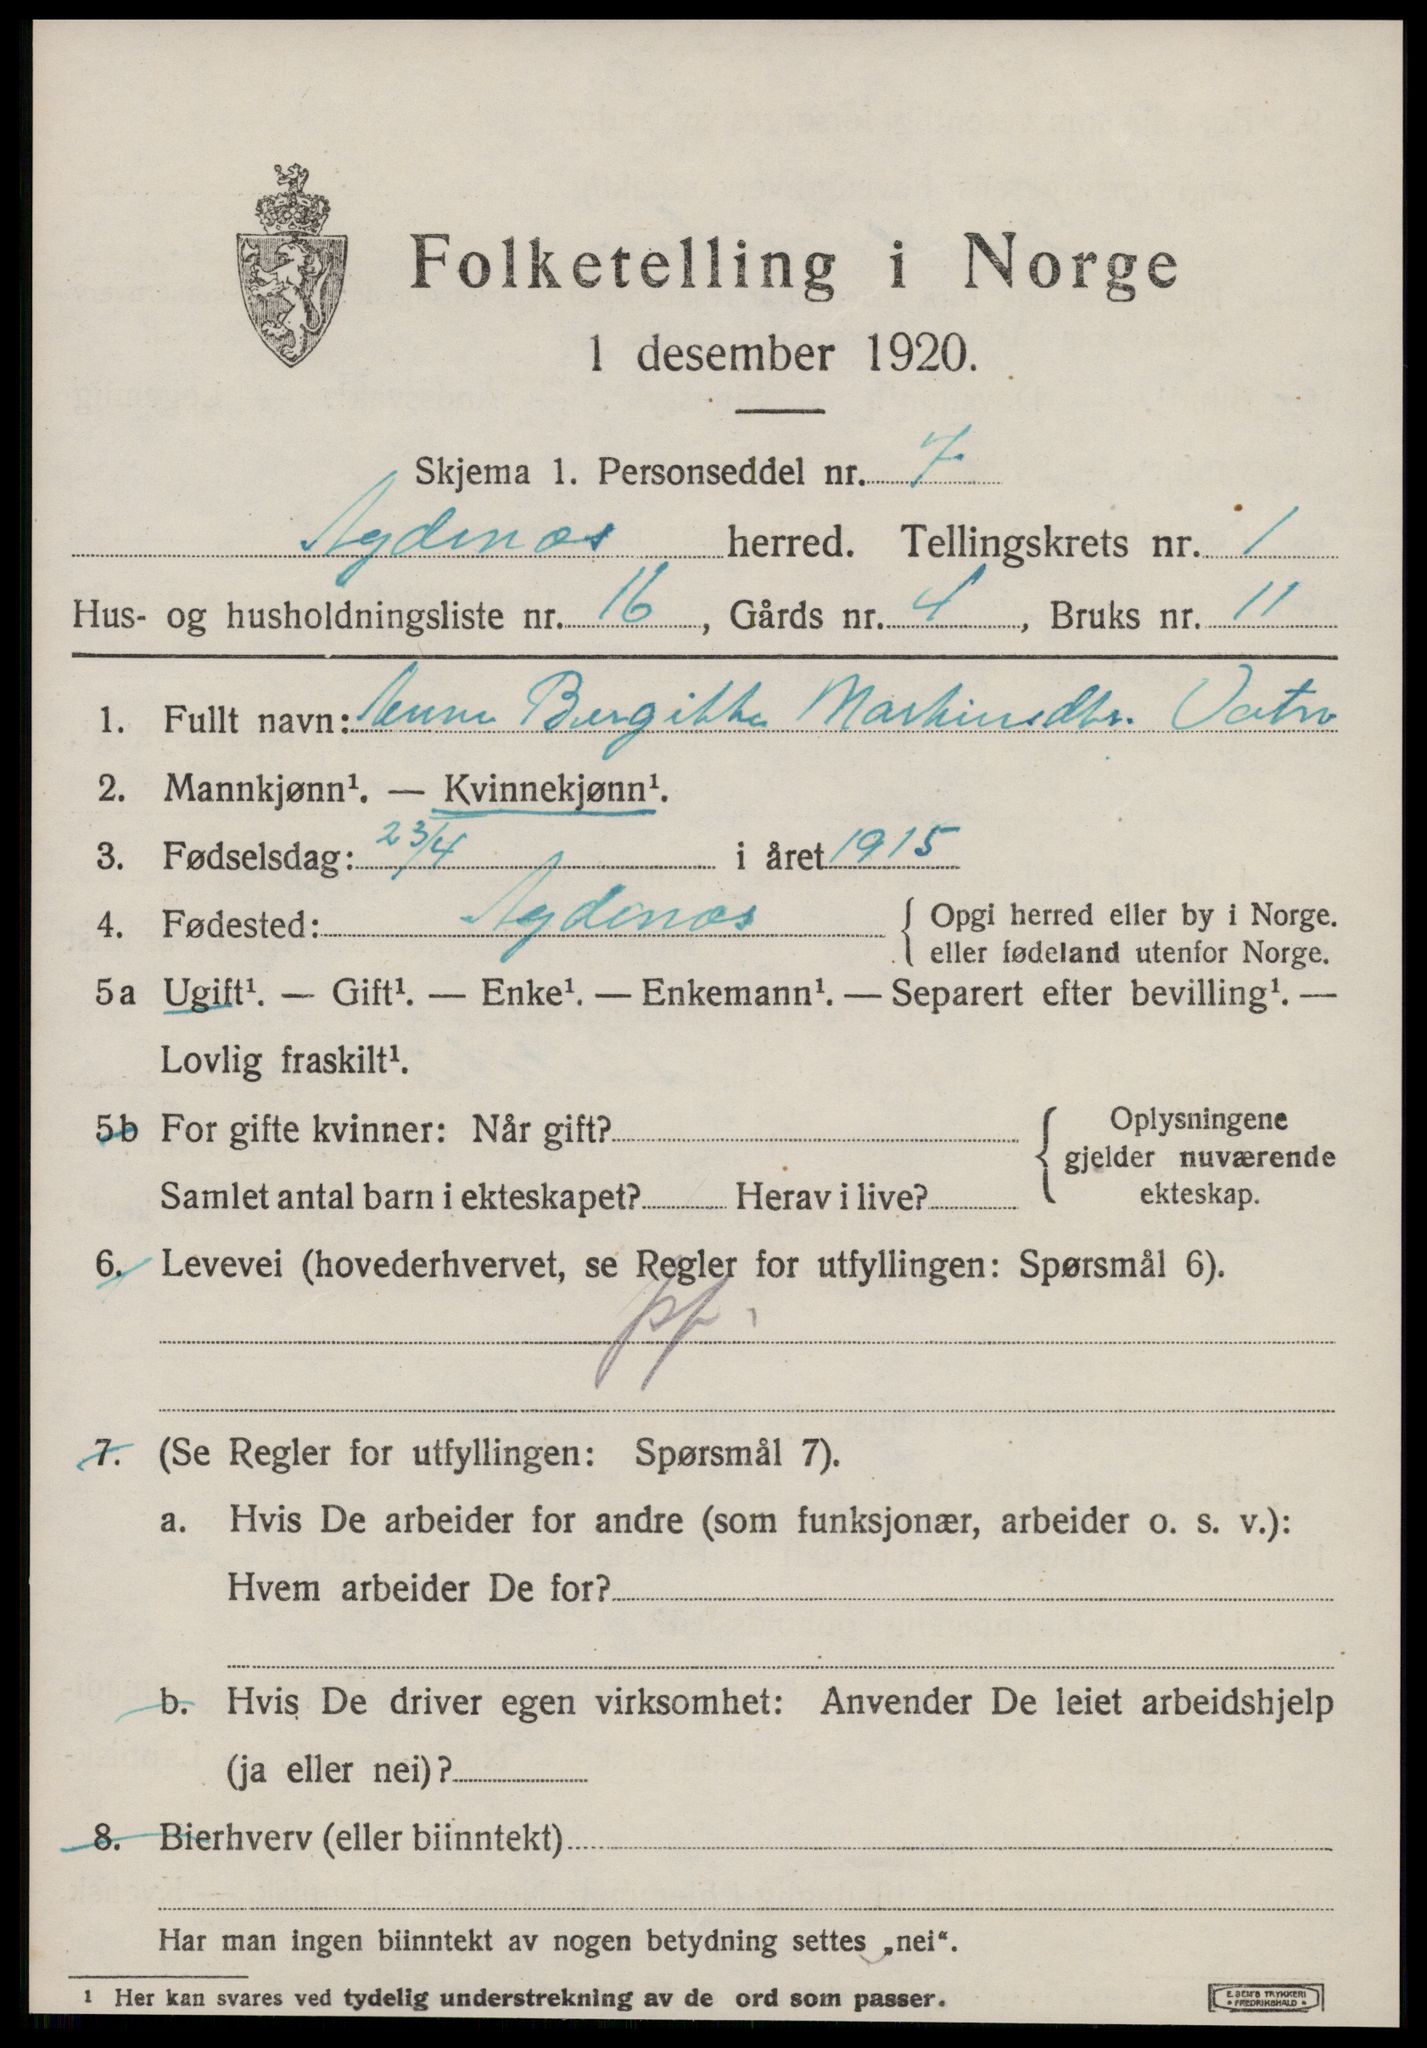 Folketelling i Norge
1 desember 1920.
Skjema 1. Personseddel nr. 7.
Agdenæs herred. Tellingskrets nr. 1
Hus- og husholdningsliste nr. 16, Gårds nr. 4, Bruks nr. 11
1. Fullt navn: Anna Bergitte Martinsdtr. Vatn
2. Mannkjønn¹. — Kvinnekjønn¹.
3. Fødselsdag: 23/4 i året 1915
4. Fødested: Agdenæs { Opgi herred eller by i Norge.
eller fødeland utenfor Norge.
5a Ugift¹. — Gift¹. — Enke¹. — Enkemann¹. — Separert efter bevilling¹. —
Lovlig fraskilt¹.
5b For gifte kvinner: Når gift? { Oplysningene
gjelder nuværende
Samlet antal barn i ekteskapet? Herav i live? ekteskap.
6. Levevei (hovederhvervet, se Regler for utfyllingen: Spørsmål 6).
7. (Se Regler for utfyllingen: Spørsmål 7).
a. Hvis De arbeider for andre (som funksjonær, arbeider o. s. v.):
Hvem arbeider De for?
b. Hvis De driver egen virksomhet: Anvender De leiet arbeidshjelp
(ja eller nei)?
8. Bierhverv (eller biinntekt)
Har man ingen biinntekt av nogen betydning settes „nei“.
¹ Her kan svares ved tydelig understrekning av de ord som passer.
E. SEM'S TRYKKERI
* FREDRIKSHALD *